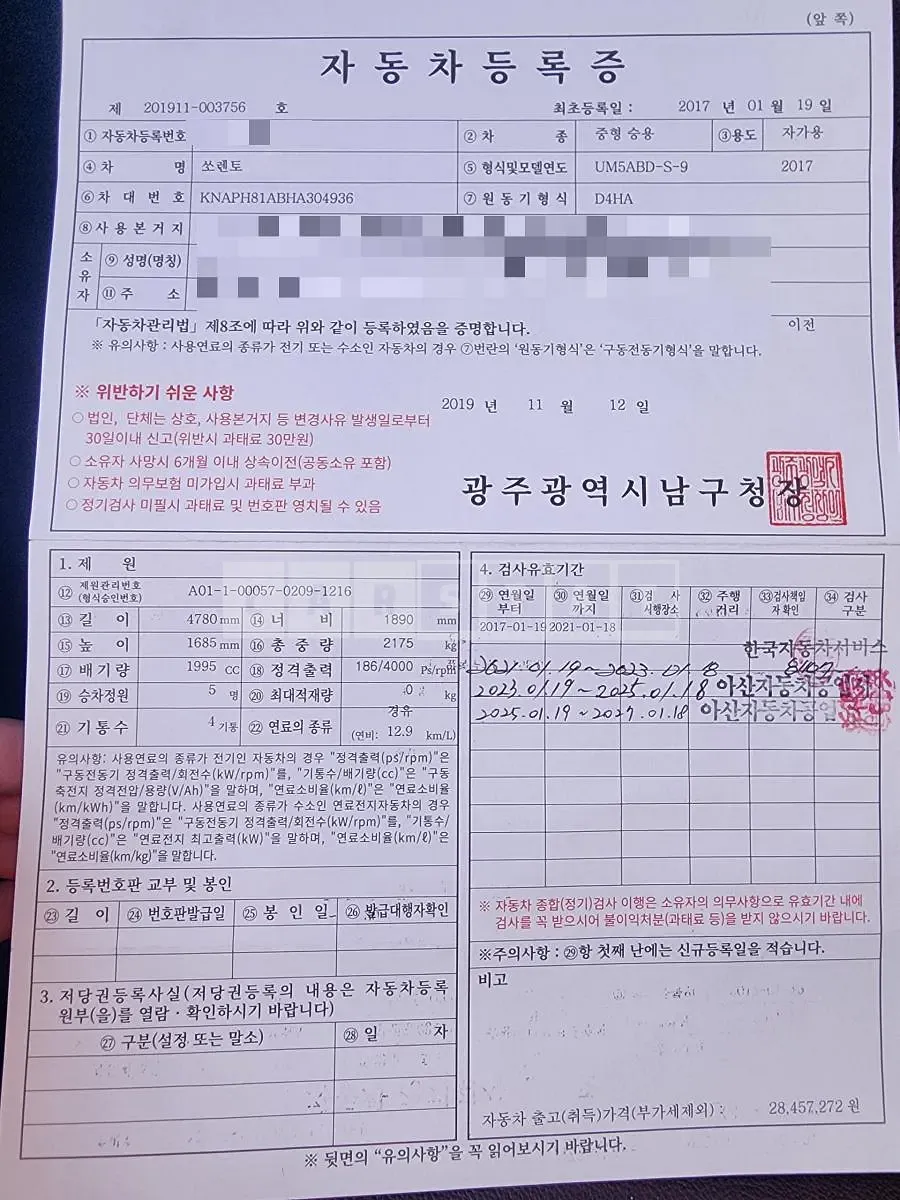 (앞 쪽)
자 동 차 등 록 증
제 201911-003756 호 최초등록일 : 2017 년 01 월 19 일
① 자동차등록번호 ② 차 종 중형 승용 ③용도 자가용
④ 차 명 쏘렌토 ⑤ 형식및모델연도 UM5ABD-S-9 2017
⑥ 차 대 번 호 KNAPH81ABHA304936 ⑦ 원 동 기 형 식 D4HA
⑧ 사 용 본 거 지
소유자 ⑨ 성명(명칭)
⑪ 주 소
「자동차관리법」 제8조에 따라 위와 같이 등록하였음을 증명합니다. 이전
※ 유의사항 : 사용연료의 종류가 전기 또는 수소인 자동차의 경우 ⑦번란의 '원동기형식'은 '구동전동기형식'을 말합니다.
※ 위반하기 쉬운 사항
2019 년 11 월 12 일
○ 법인, 단체는 상호, 사용본거지 등 변경사유 발생일로부터
30일이내 신고(위반시 과태료 30만원)
○ 소유자 사망시 6개월 이내 상속이전(공동소유 포함)
○ 자동차 의무보험 미가입시 과태료 부과
○ 정기검사 미필시 과태료 및 번호판 영치될 수 있음
광주광역시남구청장
1. 제 원
⑫ 제원관리번호 (형식승인번호) A01-1-00057-0209-1216
⑬ 길 이 4780 mm ⑭ 너 비 1890 mm
⑮ 높 이 1685 mm ⑯ 총 중 량 2175 kg
⑰ 배 기 량 1995 CC ⑱ 정격출력 186/4000 Ps/rpm
⑲ 승차정원 5 명 ⑳ 최대적재량 0 kg
㉑ 기 통 수 4 기통 ㉒ 연료의 종류 경유 (연비: 12.9 km/L)
유의사항: 사용연료의 종류가 전기인 자동차의 경우 "정격출력(ps/rpm)"은
"구동전동기 정격출력/회전수(kW/rpm)"를, "기통수/배기량(cc)"은 "구동
축전지 정격전압/용량(V/Ah)"을 말하며, "연료소비율(km/ℓ)"은 "연료소비율
(km/kWh)"을 말합니다. 사용연료의 종류가 수소인 연료전지자동차의 경우
"정격출력(ps/rpm)"은 "구동전동기 정격출력/회전수(kW/rpm)"를, "기통수/
배기량(cc)"은 "연료전지 최고출력(kW)"을 말하며, "연료소비율(km/ℓ)"은
"연료소비율(km/kg)"을 말합니다.
2. 등록번호판 교부 및 봉인
㉓ 길 이 ㉔ 번호판발급일 ㉕ 봉 인 일 ㉖ 발급대행자확인
3. 저당권등록사실(저당권등록의 내용은 자동차등록
원부(을)를 열람 · 확인하시기 바랍니다)
㉗ 구분(설정 또는 말소) ㉘ 일 자
4. 검사유효기간
㉙ 연월일 부터 ㉚ 연월일 까지 ㉛ 검 사 시행장소 ㉜ 주행 거리 ㉝검사책임 자 확인 ㉞ 검사 구분
2017-01-19 2021-01-18
한국자동차서비스
2021.01.19 ~ 2023.01.18
2023.01.19 ~ 2025.01.18 아산자동차공업
2025.01.19 ~ 2027.01.18 아산자동차공업
※ 자동차 종합(정기)검사 이행은 소유자의 의무사항으로 유효기간 내에
검사를 꼭 받으시어 불이익처분(과태료 등)을 받지 않으시기 바랍니다.
※주의사항 : ㉙항 첫째 난에는 신규등록일을 적습니다.
비고
자동차 출고(취득)가격(부가세제외) : 28,457,272 원
※ 뒷면의 "유의사항"을 꼭 읽어보시기 바랍니다.